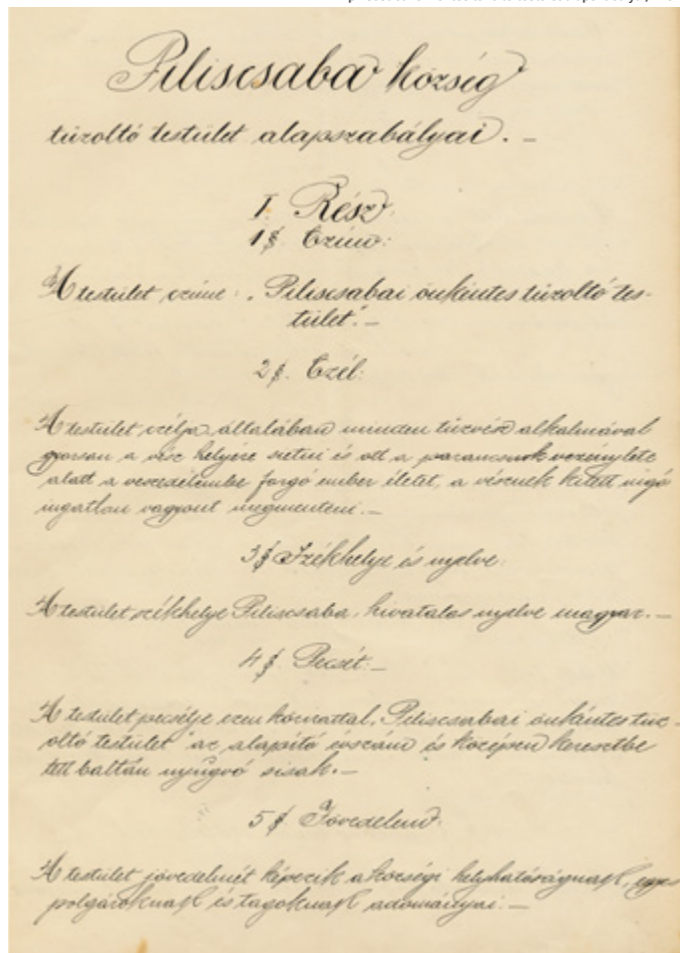 Piliscsaba község
tűzoltó testület alapszabályai. —
I. Rész.
1 § Czím:
A testület czíme: „Piliscsabai önkéntes tűzoltó tes-
tület". —
2 §. Czél:
A testület czélja általában minden tűzvész alkalmával
gyorsan a vész helyére sietni és ott a parancsnok vezénylete
alatt a veszedelembe forgó ember életet, a vésznek kitett ingó
ingatlan vagyont megmenteni. —
3 § Székhelye és nyelve:
A testület székhelye Piliscsaba, hivatalos nyelve magyar. —
4 § Pecsét: —
A testület pecsétje ezen körirattal, Piliscsabai önkéntes tűz-
oltó testület" az alapító évszám és középen keresztbe
tett baltán nyugvó sisak. —
5 § Jövedelem:
A testület jövedelmét képezik a községi helyhatóságnak, egyes
polgároknak és tagoknak adományai: —